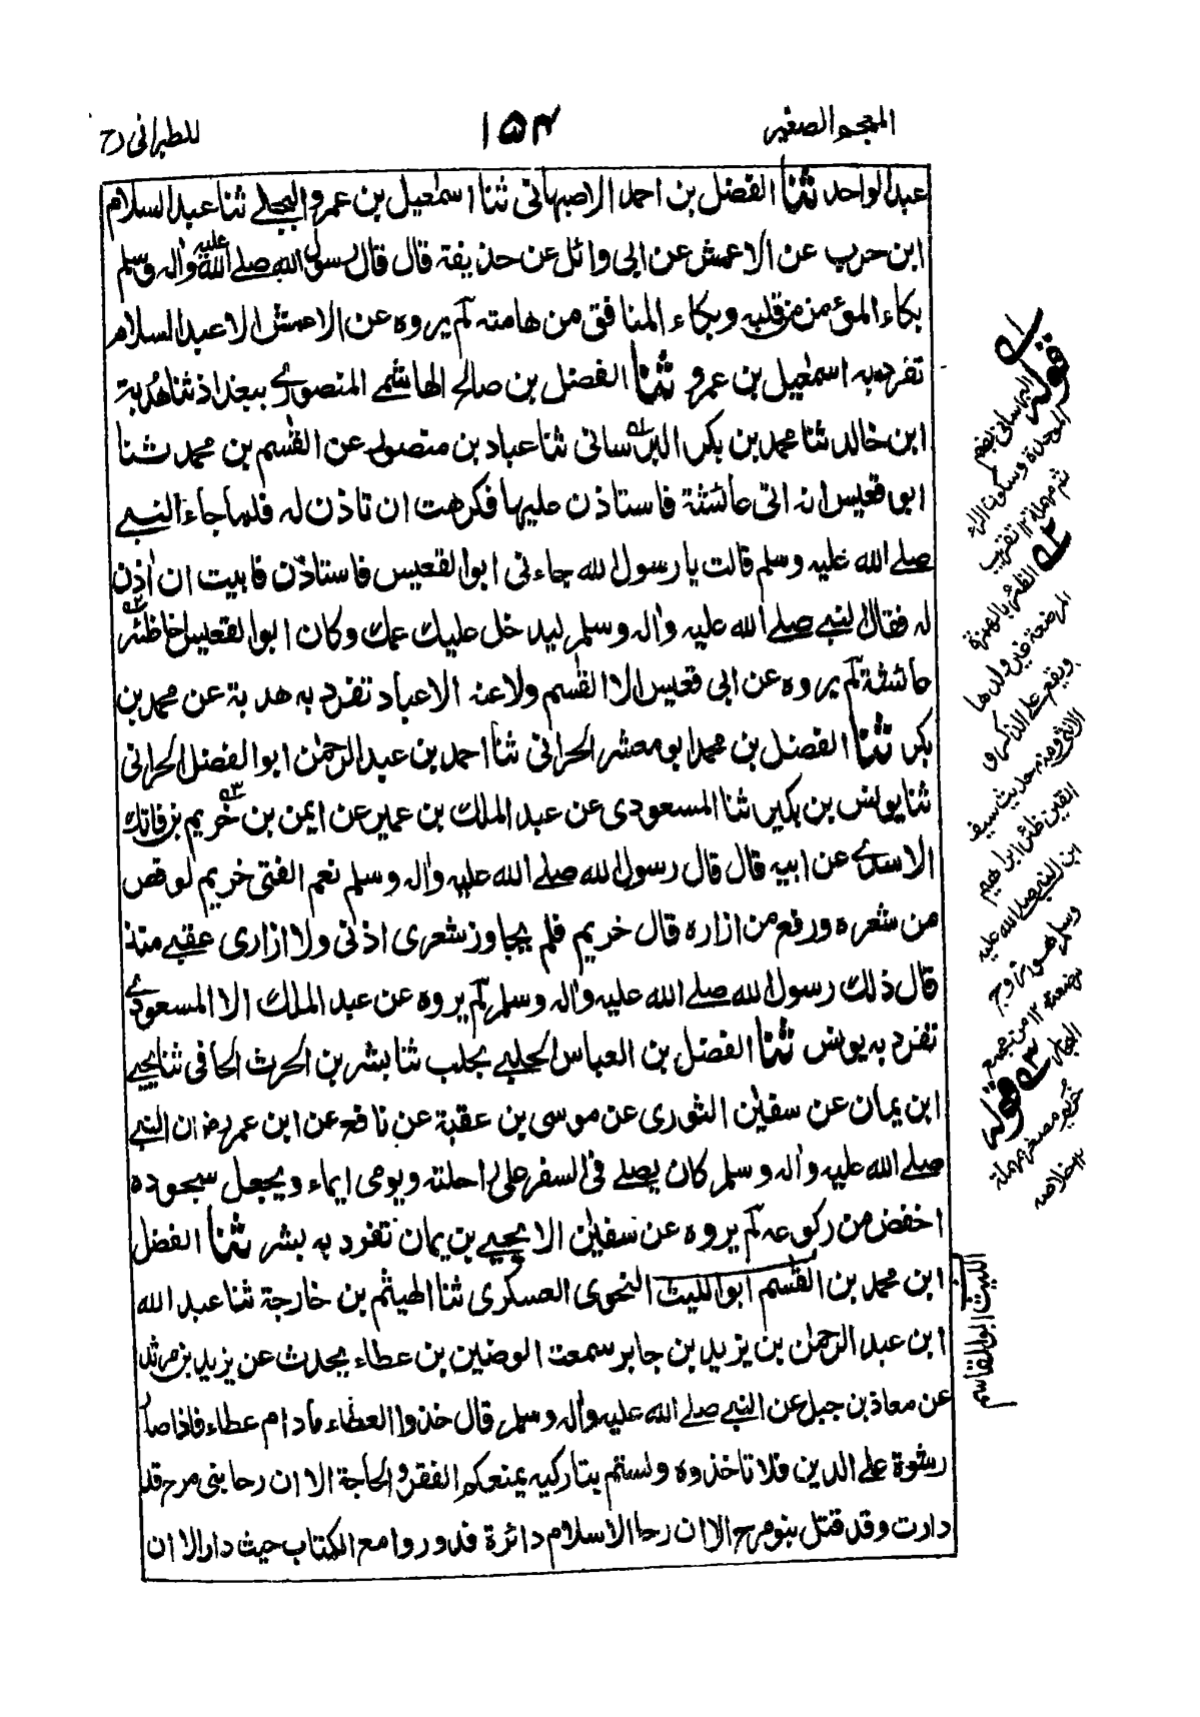 المعجم الصغير
١٥٤
للطبرانى رح
عبد الواحد ثنا الفضل بن احمد الاصبهانى ثنا اسمٰعيل بن عمرو البجلے ثنا عبد السلام
ابن حرب عن الاعمش عن ابى وائل عن حذيفة قال قال رسول الله صلے الله عليه واٰله وسلم
بكاء المؤمن من قلبه وبكاء المنافق من هامته لم يروه عن الاعمش الا عبد السلام
تفرد به اسمٰعيل بن عمرو ثنا الفضل بن صالح الهاشمے المنصورے ببغداد ثنا هدبة
ابن خالد ثنا محمد بن بكر البرسانى ثنا عباد بن منصور عن القٰسم بن محمد ثنا
ابو قعيس انه اتى عائشة فاستاذن عليها فكرهت ان تاذن له فلما جاء النبے
صلے الله عليه وسلم قالت يا رسول الله جاءنى ابو القعيس فاستاذن فابيت ان اٰذن
له فقال النبے صلے الله عليه واٰله وسلم ليدخل عليك عمك وكان ابو القعيس اخا ظئر
عائشة لم يروه عن ابى قعيس الا القٰسم ولا عنه الا عباد تفرد به هدبة عن محمد بن
بكر ثنا الفضل بن محمد ابو معشر الحرانى ثنا احمد بن عبد الرحمٰن ابو الفضل الحرانى
ثنا يونس بن بكير ثنا المسعودى عن عبد الملك بن عمير عن ايمن بن خريم بن فاتك
الاسدے عن ابيه قال قال رسول الله صلے الله عليه واٰله وسلم نعم الفتى خريم لو قص
من شعره ورفع من ازاره قال خريم فلم يجاوز شعرى اذنى ولا ازارى عقبے منذ
قال ذلك رسول الله صلے الله عليه واٰله وسلم لم يروه عن عبد الملك الا المسعودے
تفرد به يونس ثنا الفضل بن العباس الحلبے بحلب ثنا بشر بن الحرث الحافى ثنا يحيے
ابن يمان عن سفيٰن الثورى عن موسى بن عقبة عن نافع عن ابن عمر رض ان النبے
صلے الله عليه واٰله وسلم كان يصلے فى السفر على راحلته ويومى ايماء ويجعل سجوده
اخفض من ركوعه لم يروه عن سفيٰن الا يحيے بن يمان تفرد به بشر ثنا الفضل
ابن محمد بن القٰسم ابو الليث النحوى العسكرى ثنا الهيثم بن خارجة ثنا عبد الله
ابن عبد الرحمٰن بن يزيد بن جابر سمعت الوضين بن عطاء يحدث عن يزيد بن مرثد
عن معاذ بن جبل عن النبے صلے الله عليه واٰله وسلم قال خذوا العطاء ما دام عطاء فاذا صار
رشوة على الدين فلا تاخذوه ولستم بتاركيه يمنعكم الفقر والحاجة الا ان رحا بنى مرح قد
دارت وقد قتل بنو مرح الا ان رحا الاسلام دائرة فدوروا مع الكتاب حيث دار الا ان
له قوله
البرسانى بضم
الموحدة وسكون الراء
ثم مهملة ١٢ تقريب
٢ه الظئر بالهمزة
المرضعة غير ولدها
ويقع على الذكر و
الانثى ومنه حديث سيف
القين ظئر ابراهيم
ابن النبے صلے الله عليه
وسلم هو زوج
مرضعته ١٢ من مجمع
البحار ٣ه قوله
خريم مصغر بمهملة
١٢ خلاصه
الليث ابو القاسم